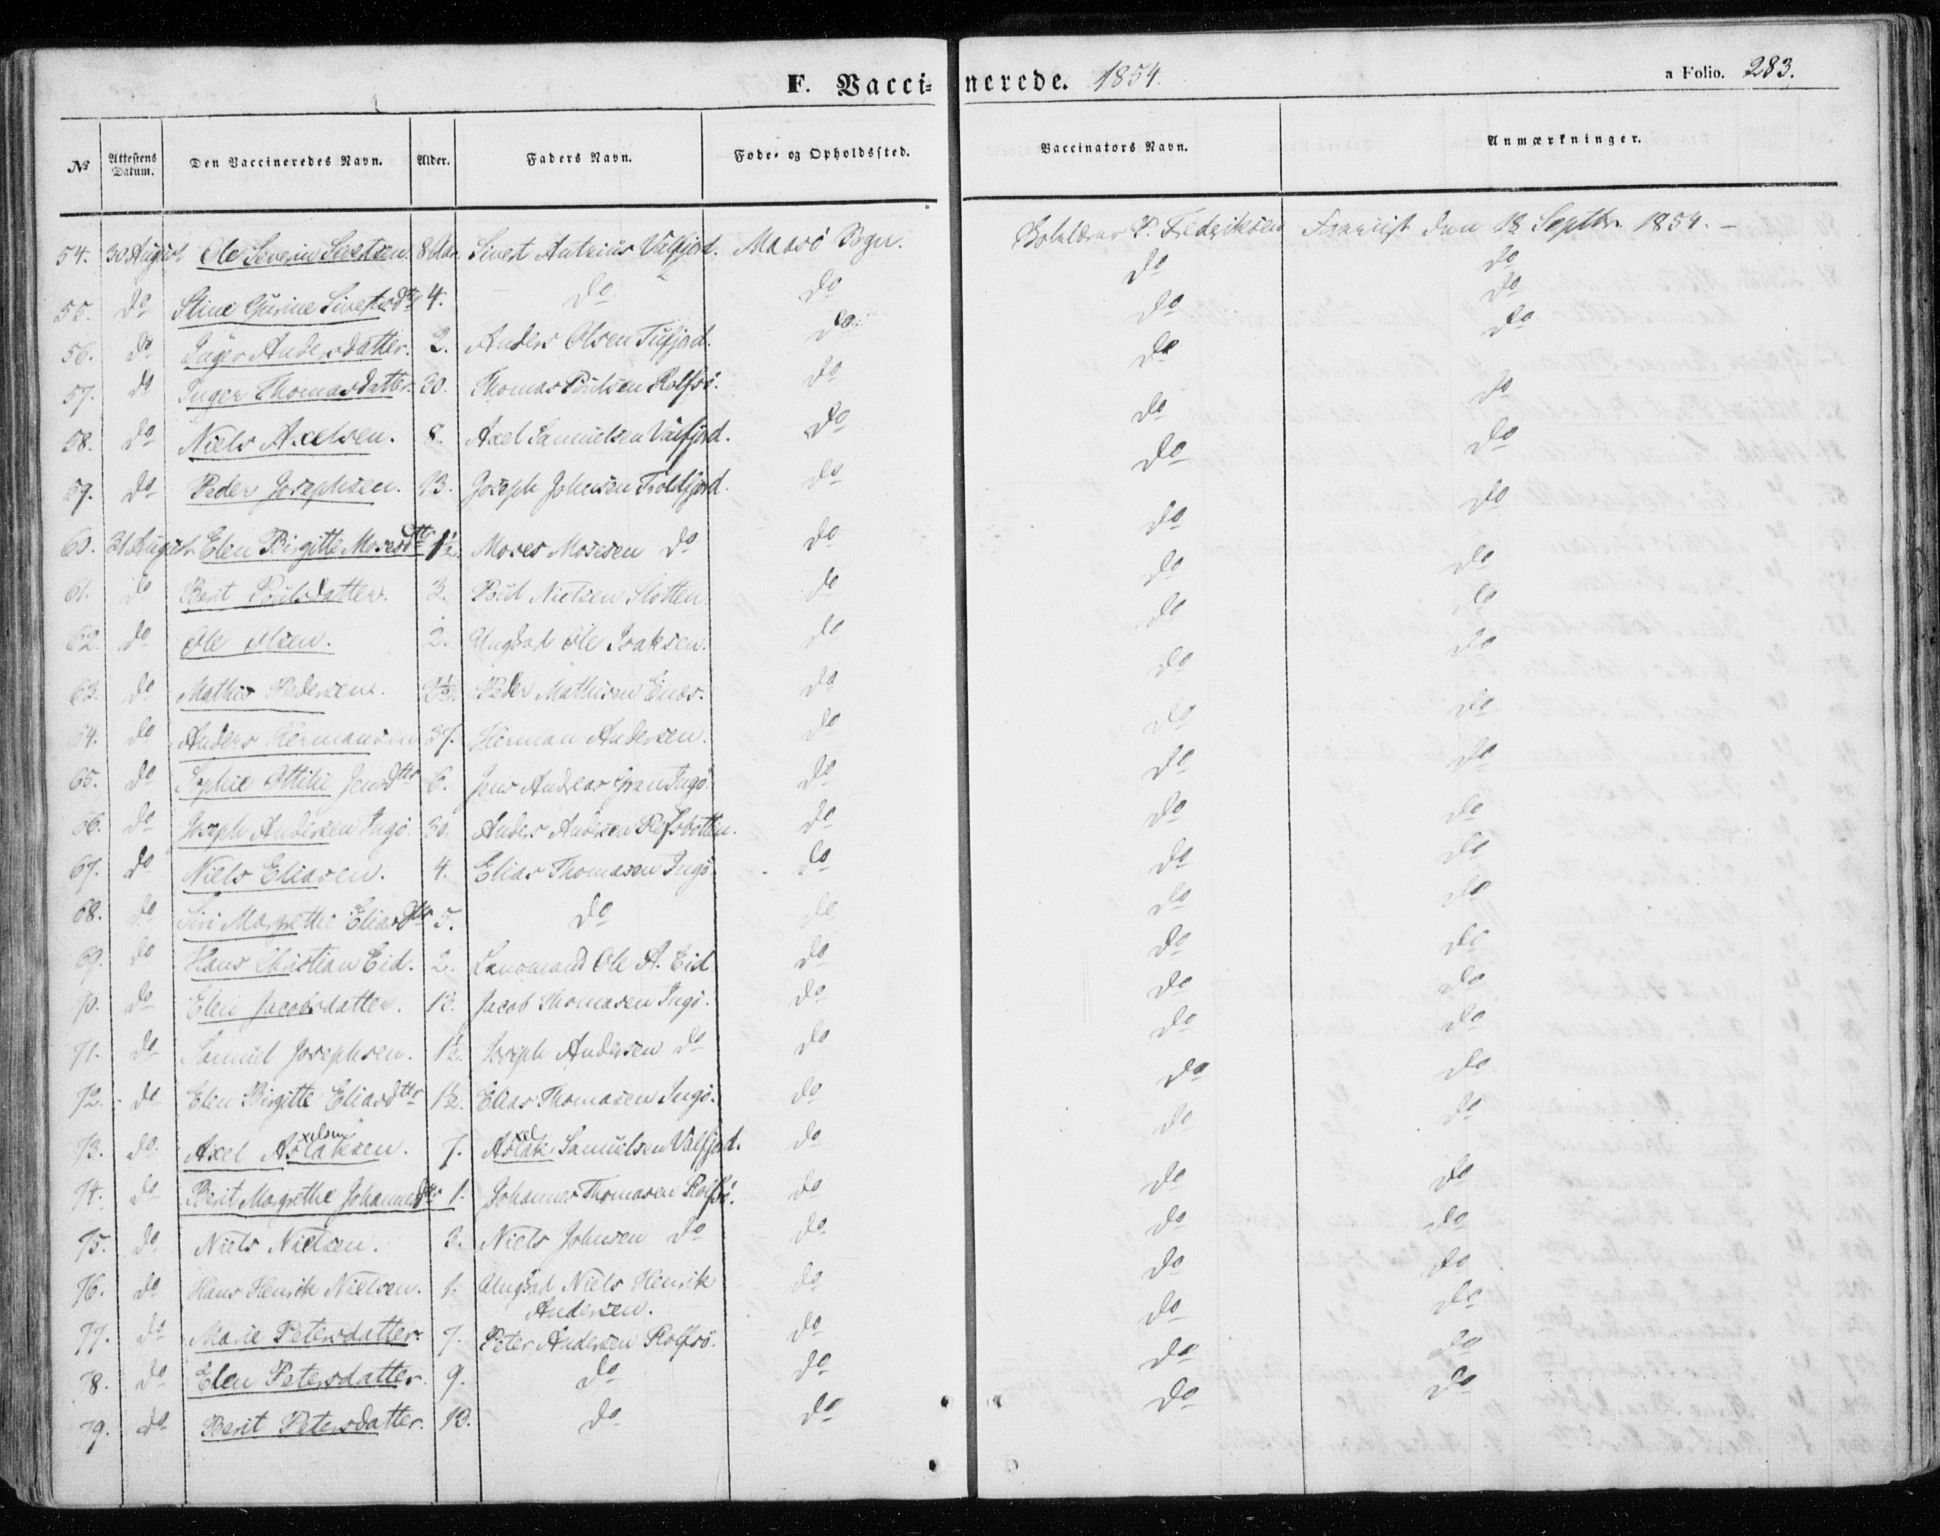 F. Vaccinerede. 1854. a Folio. 283.
№ Attestens Datum. Den Vaccineredes Navn. Alder. Faders Navn. Føde- og Opholdssted. Vaccinators Navn. Anmærkninger.
54. 30 August Ole Severin Sivertsen. 8 Aar. Sivert Antzius Valfjord. Maasö Sogn. P. Frederiksen den 18 Septbr. 1854. –
55. do Stine Gurine Sivertsdtr 4. do do do do
56. do Inger Andersdatter. 2. Anders Olsen Tufjord. do do do
57. do Inger Thomasdatter. 20. Thomas Poulsen Rolfsö. do do do
58. do Niels Axelsen. 8. Axel Samuelsen Valfjord. do do do
59. do Peder Josephsen. 13. Joseph Johnsen Troldfjord. do do do
60. 31 August Elen Birgitte Mosesdtr 1½ Moses Mosesen do do do do
61. do Berit Poulsdatter. 3. Poul Nielsen Slotten. do do do
62. do Ole Olsen. 2. Ungkarl Ole Isaksen. do do do
63. do Mathis Pedersen. 2½. Peder Mathisen do do do
64. do Anders Hermansen 37. Herman Andersen. do do do
65. do Sophie Ottilie Jensdtr 6. Jens Andreas Gran Ingö. do do do
66. do Joseph Andersen Ingö. 30. Anders Andersen Refsbotten. do do do
67. do Niels Eliasen. 4. Elias Thomasen Ingö. do do do
68. do Siri Margrethe Eliasdtr 5. do do do do
69. do Hans Christian Eid. 2. Lensmand Ole A. Eid. do do do
70. do Elen Jacobsdatter. 13. Jacob Thomasen Ingö. do do do
71. do Samuel Josephsen. 1½. Joseph Andersen do do do do
72. do Elen Birgitte Eliasdtr 1½. Elias Thomasen Ingö. do do do
xelsen xel
73. do Axel Aslaksen. 7. Aslak Samuelsen Valfjord. do do do
74. do Berit Margrethe Johannesdtr 1. Johannes Thomasen Rolfsö. do do do
75. do Niels Nielsen. 3. Niels Johnsen do do do do
76. do Hans Henrik Nielsen. 1. Ungkarl Niels Henrik do do do
Andersen.
77. do Marie Petersdatter. 7. Peter Andersen Rolfsö. do do do
78. do Elen Petersdatter. 9. do do do do
79. do Berit Petersdatter. 13. do do do do